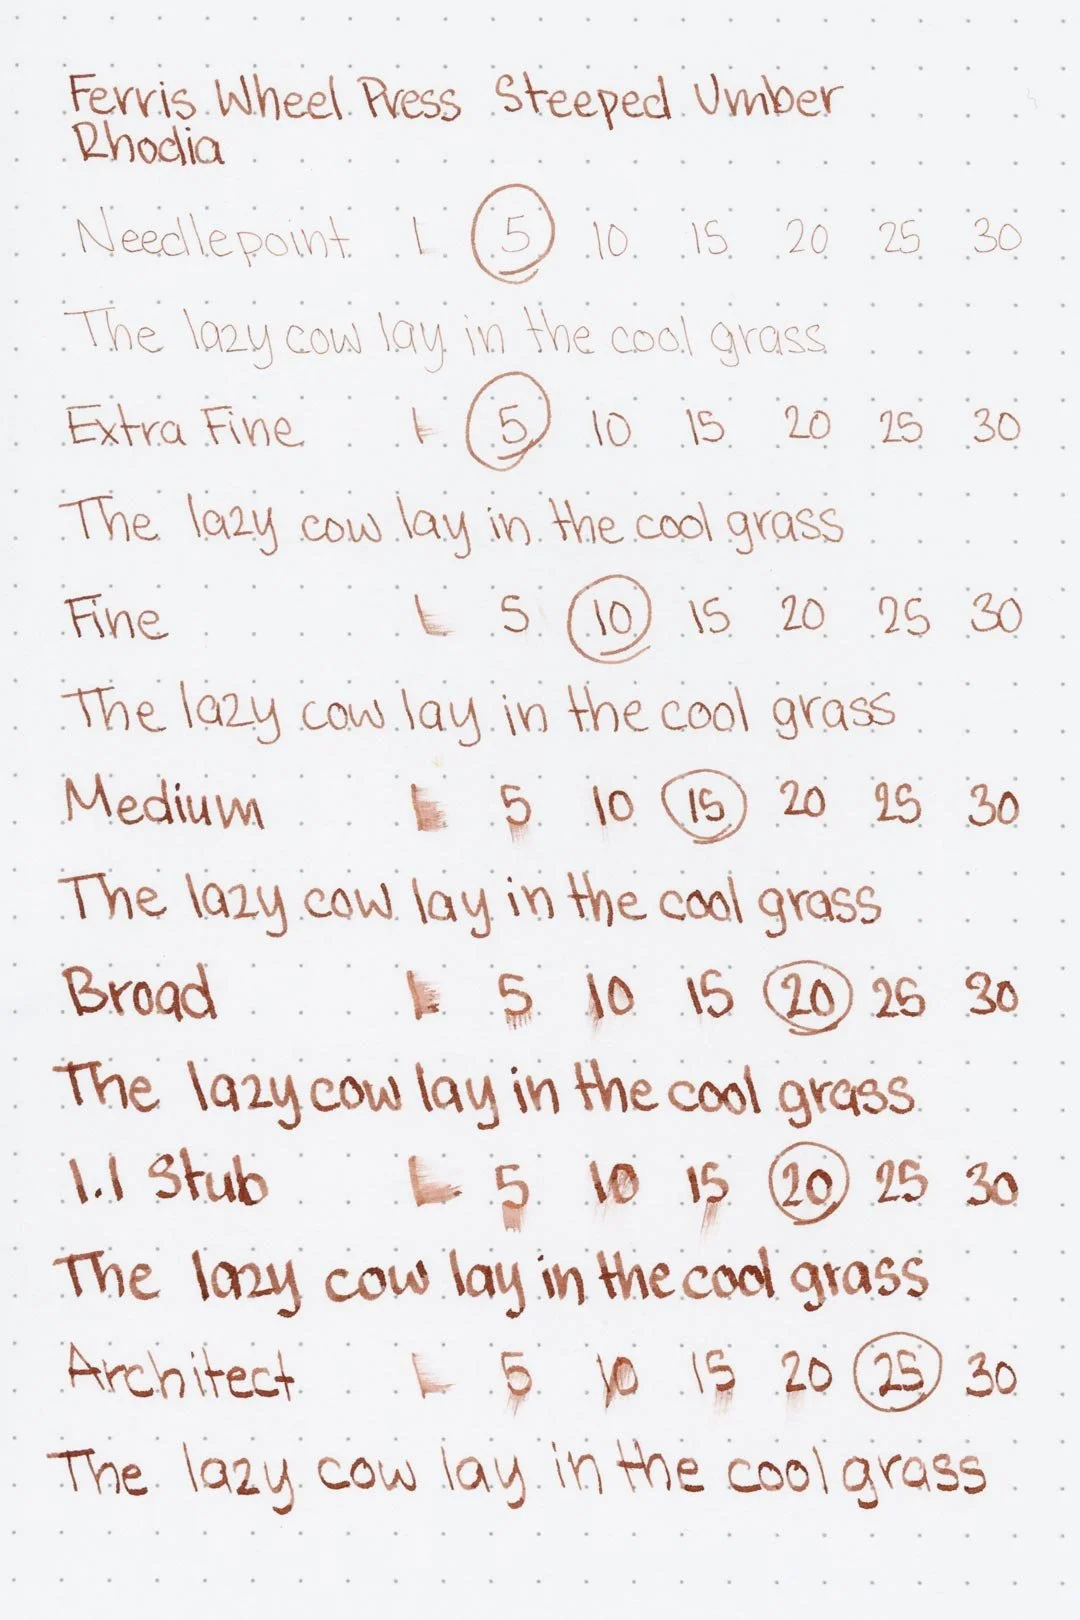 Ferris Wheel Press Steeped Umber
Rhodia
Needlepoint L 5 10 15 20 25 30
The lazy cow lay in the cool grass
Extra Fine L 5 10 15 20 25 30
The lazy cow lay in the cool grass
Fine L 5 10 15 20 25 30
The lazy cow lay in the cool grass
Medium L 5 10 15 20 25 30
The lazy cow lay in the cool grass
Broad L 5 10 15 20 25 30
The lazy cow lay in the cool grass
1.1 Stub L 5 10 15 20 25 30
The lazy cow lay in the cool grass
Architect L 5 10 15 20 25 30
The lazy cow lay in the cool grass